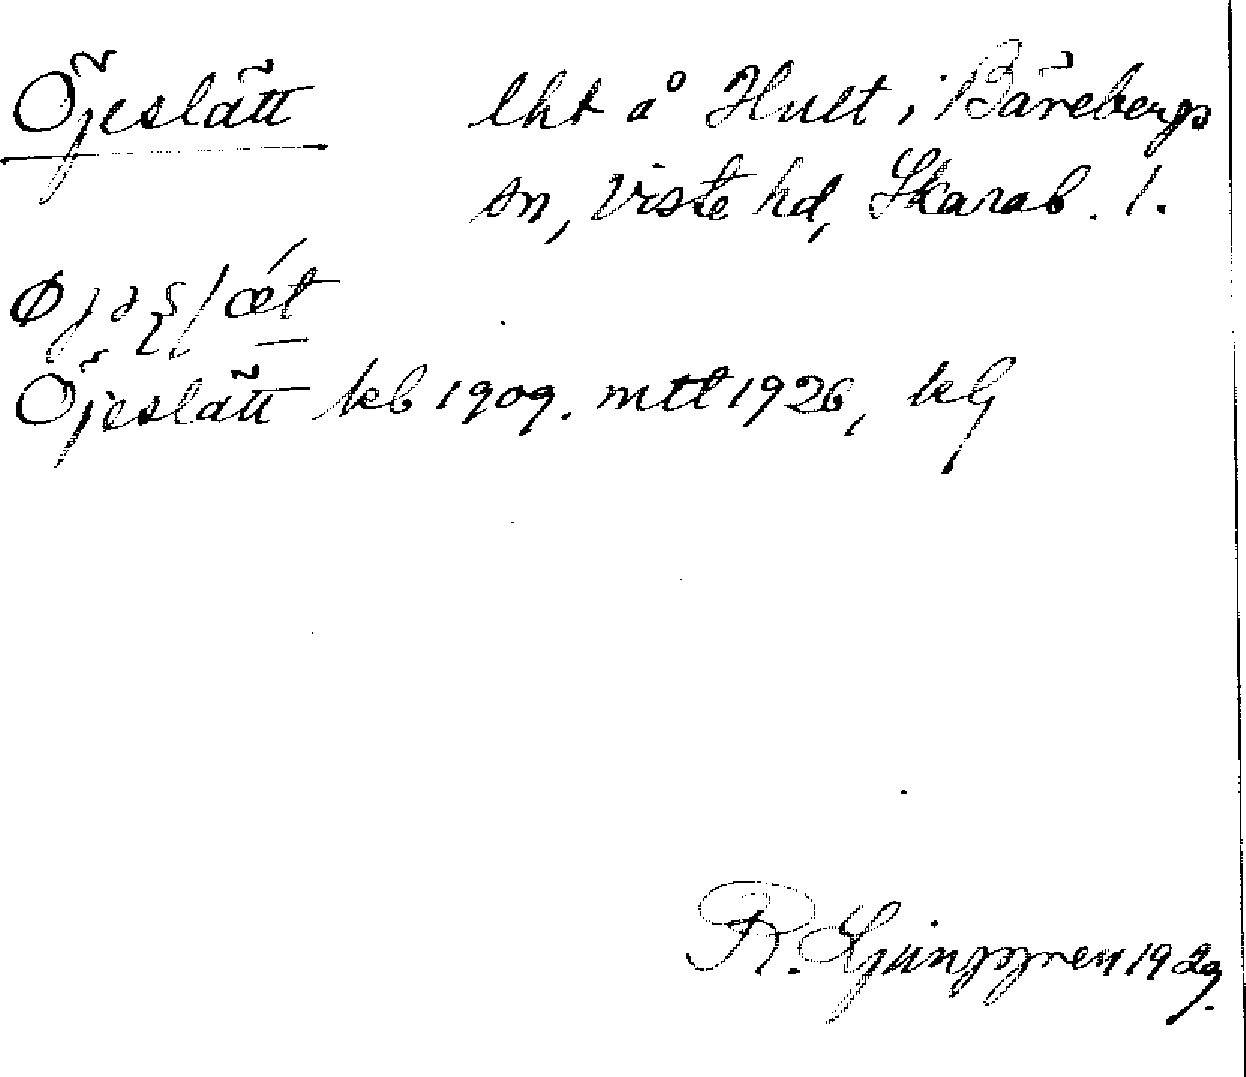 Öjeslätt lht å Hult i Bärebergs
sn, Viste hd, Skarab. l.
Öjeslätt kb 1909. mtl 1926, kg
R. Ljunggren 1929.